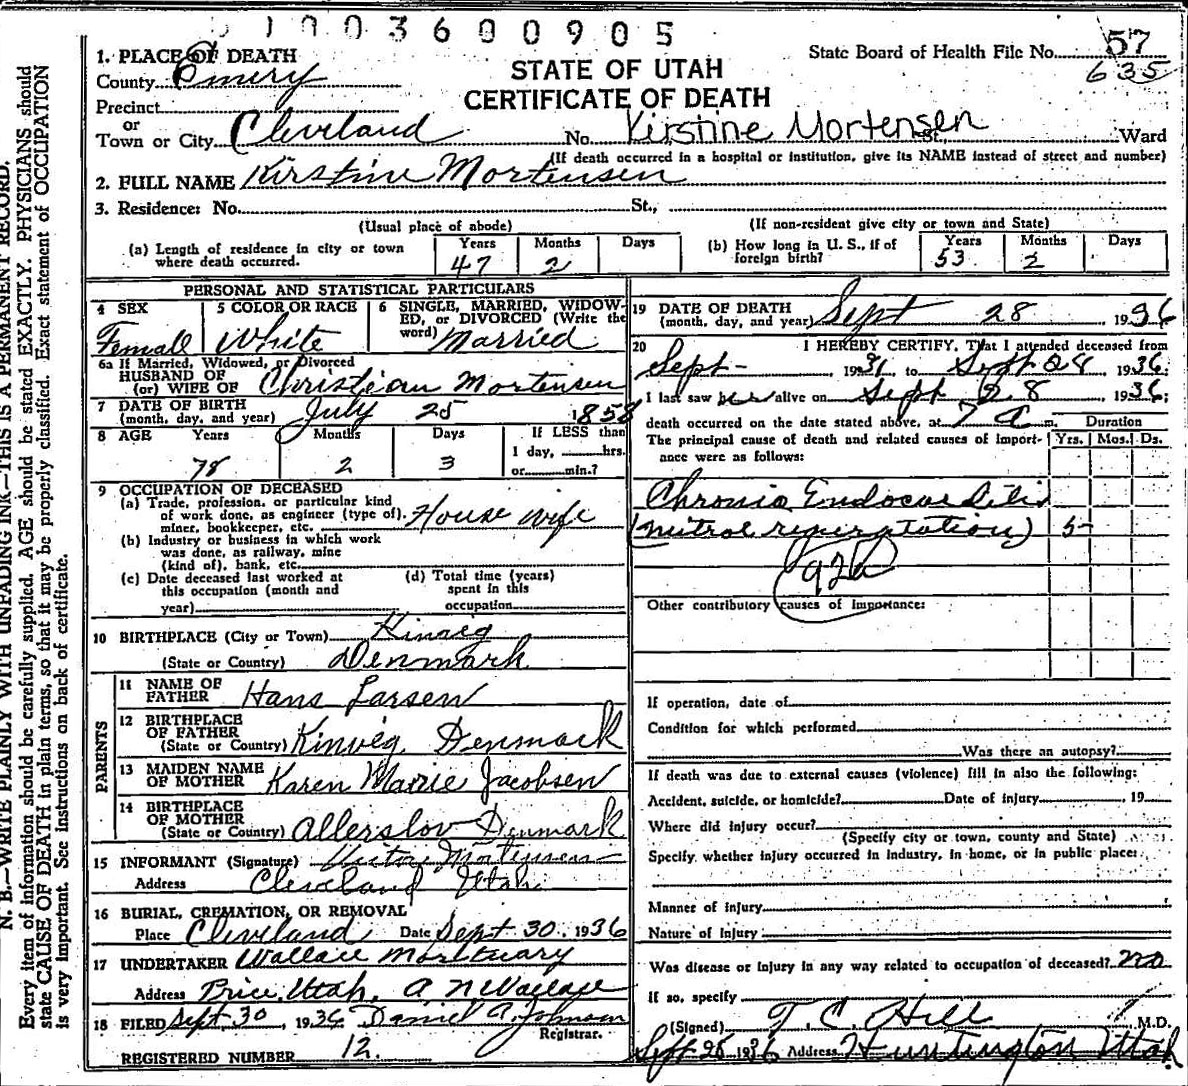 1003600905
1. PLACE OF DEATH
County Emery
Precinct
or
Town or City Cleveland No. Kirstine Mortensen St., Ward
(If death occurred in a hospital or institution, give its NAME instead of street and number)
State Board of Health File No. 57
635
STATE OF UTAH
CERTIFICATE OF DEATH
2. FULL NAME Kirstine Mortensen
3. Residence: No. St.,
(Usual place of abode) (If non-resident give city or town and State)
(a) Length of residence in city or town where death occurred. Years 47 Months 2 Days
(b) How long in U. S., if of foreign birth? Years 53 Months 2 Days
PERSONAL AND STATISTICAL PARTICULARS
4 SEX Female
5 COLOR OR RACE White
6 SINGLE, MARRIED, WIDOW-
ED, or DIVORCED (Write the
word) Married
6a If Married, Widowed, or Divorced
HUSBAND OF
(or) WIFE OF Christian Mortensen
7 DATE OF BIRTH
(month, day, and year) July 25 1858
8 AGE Years Months Days If LESS than
1 day, hrs.
78 2 3 or min.?
9 OCCUPATION OF DECEASED
(a) Trade, profession, or particular kind
of work done, as engineer (type of),
miner, bookkeeper, etc. House wife
(b) Industry or business in which work
was done, as railway, mine
(kind of), bank, etc.
(c) Date deceased last worked at
this occupation (month and
year)
(d) Total time (years)
spent in this
occupation
10 BIRTHPLACE (City or Town) Kinveg
(State or Country) Denmark
PARENTS
11 NAME OF
FATHER Hans Larsen
12 BIRTHPLACE
OF FATHER
(State or Country) Kinveg Denmark
13 MAIDEN NAME
OF MOTHER Karen Marie Jacobsen
14 BIRTHPLACE
OF MOTHER
(State or Country) Allerslov Denmark
15 INFORMANT (Signature) Mortensen
Address Cleveland Utah
16 BURIAL, CREMATION, OR REMOVAL
Place Cleveland Date Sept 30, 1936
17 UNDERTAKER Wallace Mortuary
Address Price, Utah. A. N Wallace
18 FILED Sept 30, 1936 Daniel A. Johnson
Registrar.
REGISTERED NUMBER 12.
19 DATE OF DEATH
(month, day, and year) Sept 28 1936
20 I HEREBY CERTIFY, That I attended deceased from
Sept- 1931 to Sept 28 1936;
I last saw her alive on Sept 28 1936;
death occurred on the date stated above, at 7 a m. Duration
The principal cause of death and related causes of import-
ance were as follows: Yrs. Mos. Ds.
Chronic Endocarditis
(mitral regurgitation) 5-
92b
Other contributory causes of importance:
If operation, date of
Condition for which performed
Was there an autopsy?
If death was due to external causes (violence) fill in also the following:
Accident, suicide, or homicide? Date of injury 19
Where did injury occur?
(Specify city or town, county and State)
Specify whether injury occurred in industry, in home, or in public place:
Manner of injury
Nature of injury
Was disease or injury in any way related to occupation of deceased? no
If so, specify
(Signed) T. C. Hill M.D.
Sept 28 1936 Address Huntington Utah
N. B.—WRITE PLAINLY WITH UNFADING INK—THIS IS A PERMANENT RECORD.
Every item of information should be carefully supplied. AGE should be stated EXACTLY. PHYSICIANS should
state CAUSE OF DEATH in plain terms, so that it may be properly classified. Exact statement of OCCUPATION
is very important. See instructions on back of certificate.